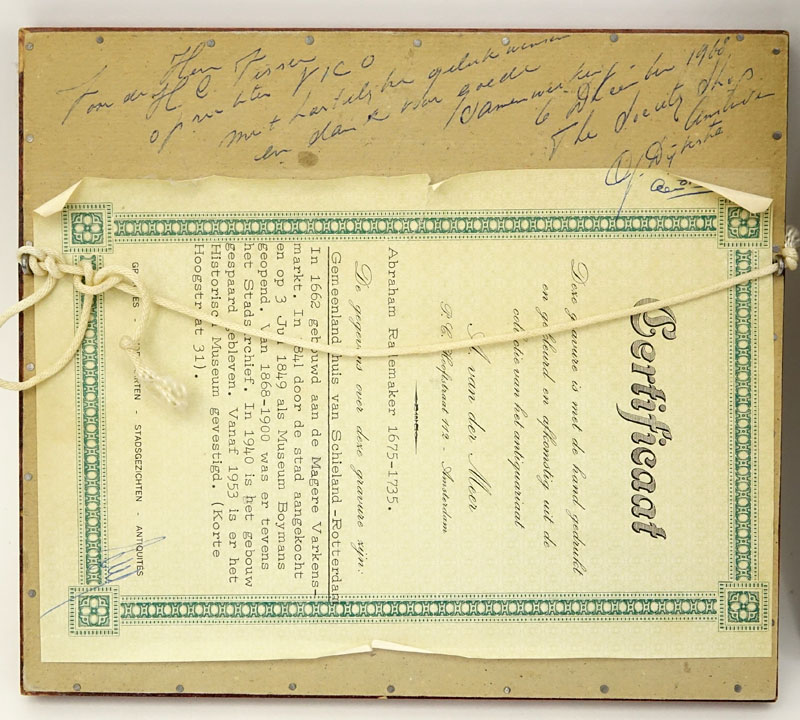 Voor de Heer
H C Visser
oprechter VICO
met hartelijke gelukwensen
en dank voor goede
samenwerking.
6 December 1968
The Society Shop
Amsterdam
Certificaat
Deze gravure is met de hand gedrukt
en gekleurd en afkomstig uit de
collectie van het antiquariaat
A. van der Meer
P. C. Hooftstraat 112 - Amsterdam
Abraham Rademaker 1675-1735.
De gegevens over deze gravure zijn:
Gemeenlandshuis van Schieland-Rotterdam
In 1662 gebouwd aan de Magere Varkens-
markt. In 1841 door de stad aangekocht
en op 3 Jul 1849 als Museum Boymans
geopend. Van 1868-1900 was er tevens
het Stads archief. In 1940 is het gebouw
gespaard gebleven. Vanaf 1953 is er het
Historisch Museum gevestigd. (Korte
Hoogstraat 31).
STADSGEZICHTEN - ANTIQUITÉS